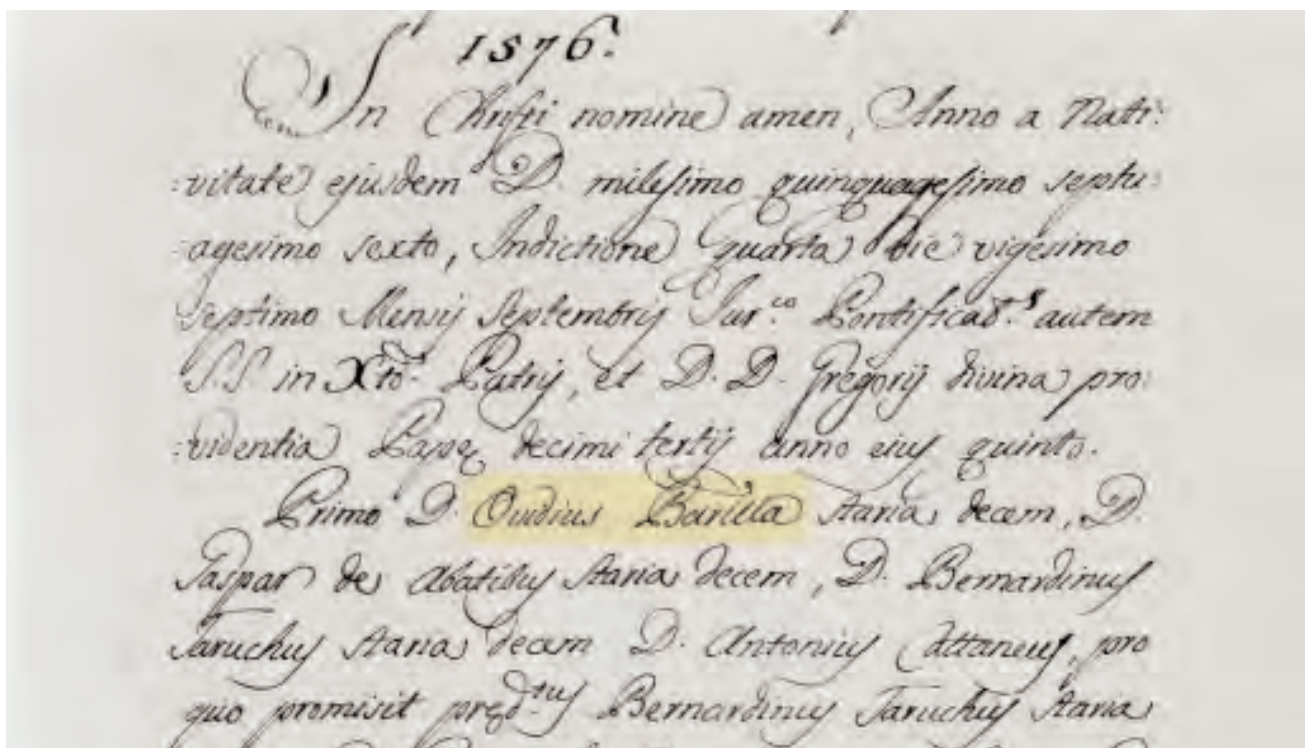 1576.
In Christi nomine amen, Anno a Nati:
:vitate ejusdem D. milesimo quinquagesimo septu:
:agesimo sexto, Indictione quarta die vigesimo
septimo Mensis Septembris Pontificat.s autem
S.S. in Xto. Patris, et D. D. Gregorij divina pro:
:videntia Papę decimi tertij anno eius quinto.
Primo D. Ovidius Barilla staria decem, D.
Gaspar de Abatibus staria decem, D. Bernardinus
Taruchus staria decem D. Antonius Cattaneus, pro
quo promisit pręd.tus Bernardinus Taruchus staria